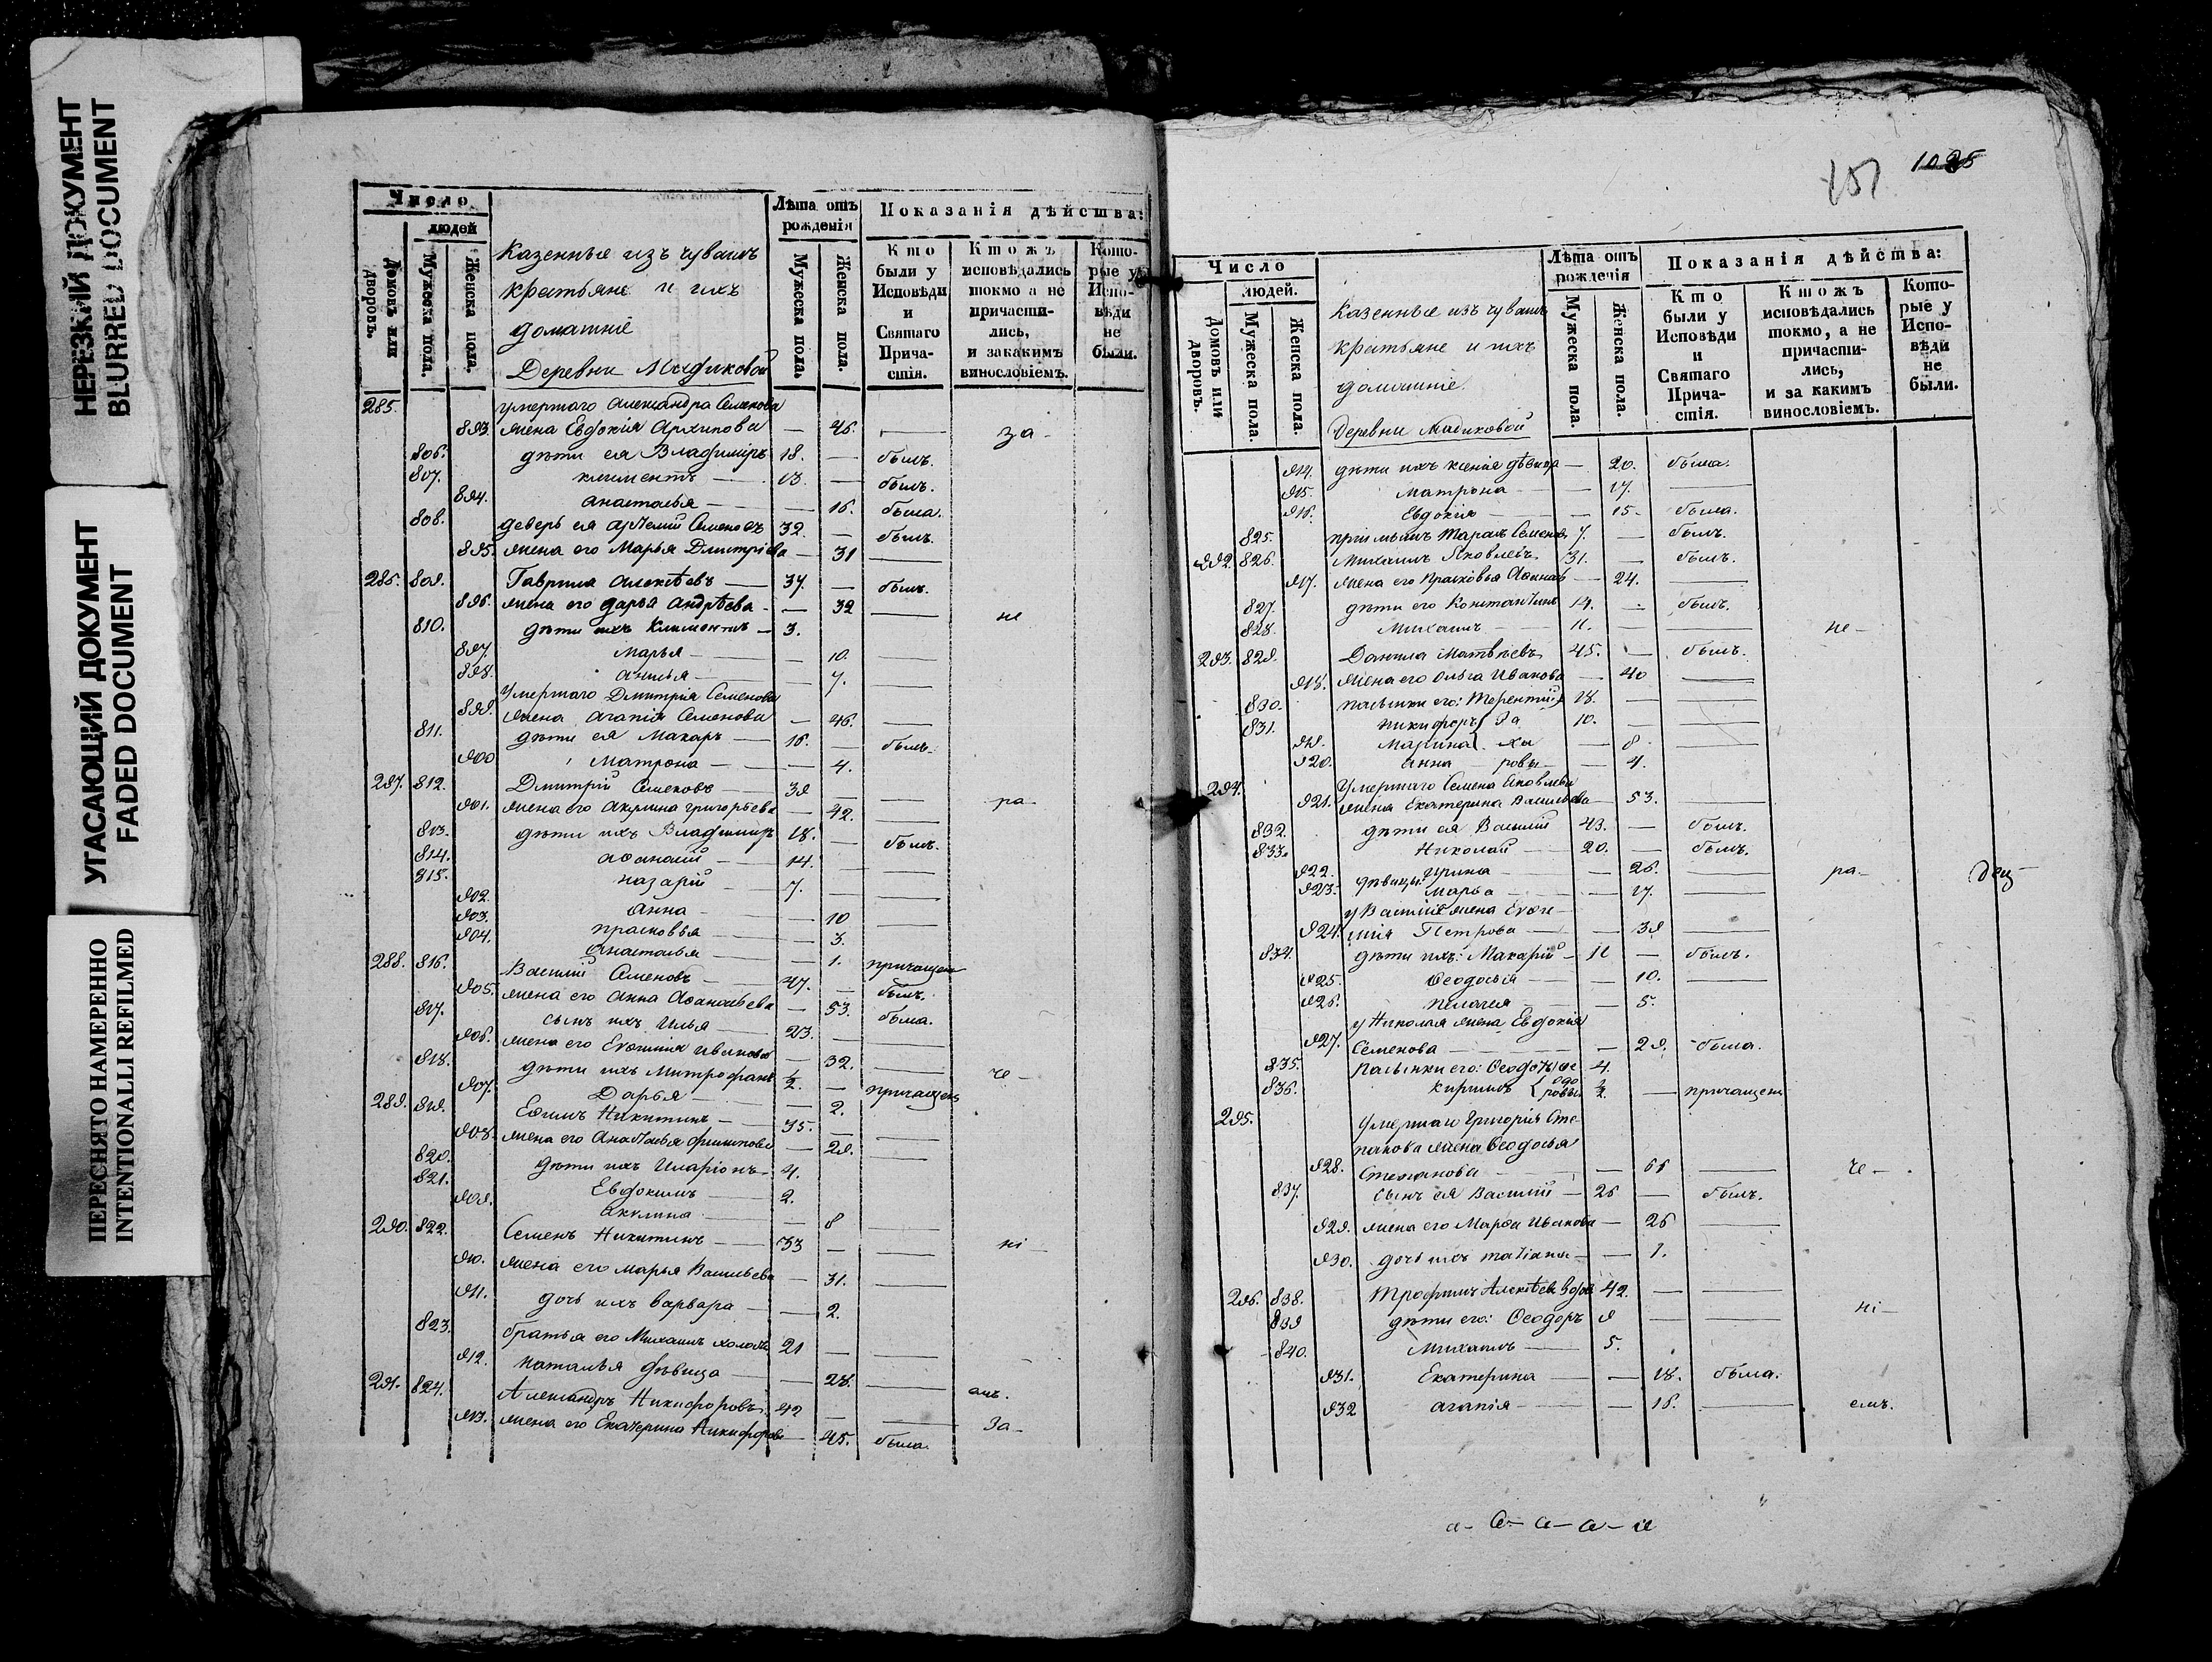 НЕРЕЗКИЙ ДОКУМЕНТ
BLURRED DOCUMENT
УГАСАЮЩИЙ ДОКУМЕНТ
FADED DOCUMENT
ПЕРЕСНЯТО НАМЕРЕННО
INTENTIONALLI REFILMED
Число
людей
Домовъ или дворовъ.
Мужеска пола.
Женска пола.
Казенные изъ чувашъ
крестьяне и ихъ
домашніе
Деревни
Лѣта отъ рожденія
Мужеска пола.
Женска пола.
Показанія дѣйства:
Кто были у Исповѣди и Святаго Причастія.
Ктожъ исповѣдались токмо а не причастились, и закакимъ винословіемъ.
Которые у Исповѣди не были.
285. умершаго Александра Семенова
893. жена Евдокия Архипова — 46. — за-
806. дѣти ея Владиміръ 18. — былъ.
807. климентъ — 13. — былъ.
894. анастасья — — 16. была.
808. деверь ея артемій Семеновъ 32. — былъ.
895. жена его Марья Дмитріева — 31 —
286. 809. Гаврила алексѣевъ — 37. — былъ.
896. жена его дарья андрѣева — — 32 — не
810. дѣти ихъ Климентъ — 3.
897. марья — — 10. —
898. — 7. —
умершаго Дмитрія Семенова
899. жена агапія Семенова — 46. —
811. дѣти ея Макаръ — 16. — былъ.
900 Матрона — — 4.
287. 812. Дмитрій Семеновъ — 39 — — ра-
901. жена его Акулина григорьева — 42. —
813. дѣти ихъ Владиміръ 18. — былъ.
814. аѳанасій — 14. — —
815. назарій — 7. — —
902. анна — — 10 —
903. прасковья — — 3.
904. анастасья — — 1. причащена
288. 816. Василій Семеновъ — 47. — былъ.
905. жена его Анна Аѳанасьева — 53. была.
817. сынъ ихъ Илья — 23. — —
906. жена его Евѳимия иванова — 32. — че-
818. дѣти ихъ Митрофанъ ½. — причащенъ
907. Дарья — — 2.
289. 819. Еѳимъ Никитинъ — 35. — —
908. жена его Анастасья филипова — 29. —
820. дѣти ихъ Иларіонъ 4.
821. Евдокимъ — 2.
909. акулина — — 8 —
290. 822. Семенъ Никитинъ — 33 — — ні-
910. жена его марья Васильева — 31. —
911. дочь ихъ варвара — — 2.
823. братья его Михаилъ холостъ 21 — —
912. наталья дѣвица — — 28. — емъ.
291. 824. Александръ Никифоровъ 42 — — За-
913. жена его Екатерина Никифорова — 45. была.
1025
Число
людей.
Домовъ или дворовъ.
Мужеска пола.
Женска пола.
Казенные изъ чувашъ
крестьяне и ихъ
домашніе.
Деревни
Лѣта отъ рожденія
Мужеска пола.
Женска пола.
Показанія дѣйства:
Кто были у Исповѣди и Святаго Причастія.
Ктожъ исповѣдались токмо, а не причастились, и за какимъ винословіемъ.
Которые у Исповѣди не были.
914. дѣти ихъ ксенія дѣвица — 20. была.
915. Матрона — — 17. —
916. Евдокія — — 15 - была.
825. пріимышъ Тарасъ Семеновъ 7. — былъ.
292. 826. Михаилъ Яковлевъ 31. — былъ.
917. жена его Прасковья — 24. —
827. дѣти его Константинъ 14. — былъ.
828. Михаилъ — 11. — — не-
293. 829. Данила Матвѣевъ 45. — былъ.
918. жена его Ольга Иванова — 40 —
830. пасынки его: Терентій 18. — —
831. никифоръ За 10. — —
919. Марина ха — 8 —
920. анна — ровы — 4.
294. Умершаго Семена Яковлева
921. жена Екатерина Васильева — 53. —
832. дѣти ея Василій 43. — былъ.
833. Николай — 20. — былъ.
922. дѣвицы: Ирина — — 26. — ра- дец
923. Марѳа — — 17. —
у Василія жена Евѳи-
924. мія Петрова — 39 —
834. дѣти ихъ: Макарій — 11 — былъ.
925. Ѳеодосія — — 10. —
926. пелагея — — 5.
у Николая жена Евдокія
927. Семенова — — 29. была.
835. пасынки его: Ѳеодотъ Ѳе 4.
836. Кирилъ одо ровы ½ — причащены
295. Умершаго Григорія Сте
панова жена Ѳеодосья
928. Степанова — — 66 — че-
837. сынъ ея Василій — 26 — былъ.
929. жена его Марѳа Иванова — 26 —
930. дочь ихъ татіана — — 1.
296. 838. Трофимъ Алексѣевъ вдовъ 42. — — ні-
839 дѣти его: Ѳеодоръ 9 — —
840. Михаилъ — 5.
931. Екатерина — — 18. была.
932 агапія — — 16. — емъ.